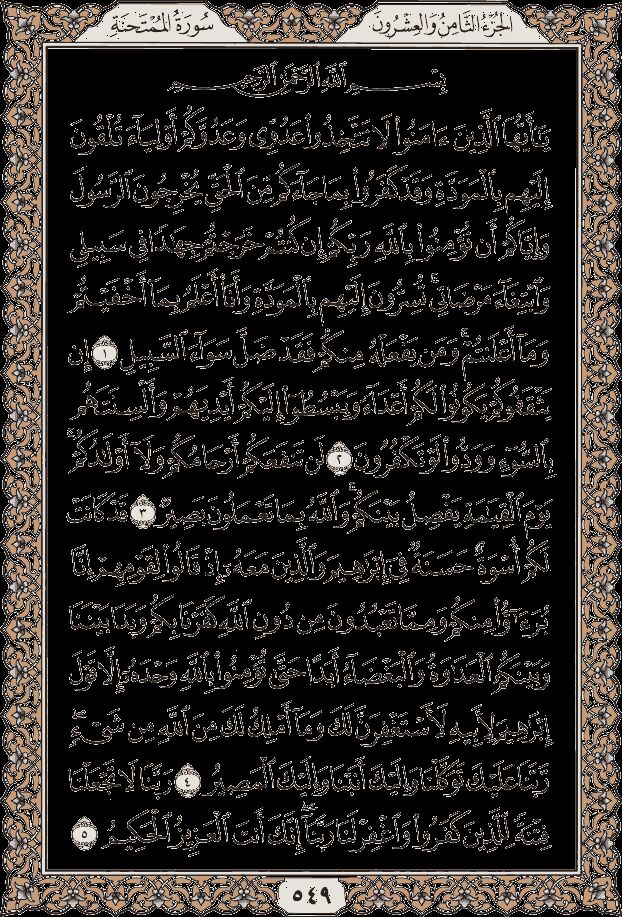 الجزء الثامن والعشرون
سورة الممتحنة
بِسْمِ ٱللَّهِ ٱلرَّحْمَٰنِ ٱلرَّحِيمِ
يَٰٓأَيُّهَا ٱلَّذِينَ ءَامَنُوا۟ لَا تَتَّخِذُوا۟ عَدُوِّى وَعَدُوَّكُمْ أَوْلِيَآءَ تُلْقُونَ
إِلَيْهِم بِٱلْمَوَدَّةِ وَقَدْ كَفَرُوا۟ بِمَا جَآءَكُم مِّنَ ٱلْحَقِّ يُخْرِجُونَ ٱلرَّسُولَ
وَإِيَّاكُمْ أَن تُؤْمِنُوا۟ بِٱللَّهِ رَبِّكُمْ إِن كُنتُمْ خَرَجْتُمْ جِهَٰدًا فِى سَبِيلِى
وَٱبْتِغَآءَ مَرْضَاتِى تُسِرُّونَ إِلَيْهِم بِٱلْمَوَدَّةِ وَأَنَا۠ أَعْلَمُ بِمَآ أَخْفَيْتُمْ
وَمَآ أَعْلَنتُمْ وَمَن يَفْعَلْهُ مِنكُمْ فَقَدْ ضَلَّ سَوَآءَ ٱلسَّبِيلِ ١ إِن
يَثْقَفُوكُمْ يَكُونُوا۟ لَكُمْ أَعْدَآءً وَيَبْسُطُوٓا۟ إِلَيْكُمْ أَيْدِيَهُمْ وَأَلْسِنَتَهُم
بِٱلسُّوٓءِ وَوَدُّوا۟ لَوْ تَكْفُرُونَ ٢ لَن تَنفَعَكُمْ أَرْحَامُكُمْ وَلَآ أَوْلَٰدُكُمْ
يَوْمَ ٱلْقِيَٰمَةِ يَفْصِلُ بَيْنَكُمْ وَٱللَّهُ بِمَا تَعْمَلُونَ بَصِيرٌ ٣ قَدْ كَانَتْ
لَكُمْ أُسْوَةٌ حَسَنَةٌ فِىٓ إِبْرَٰهِيمَ وَٱلَّذِينَ مَعَهُۥٓ إِذْ قَالُوا۟ لِقَوْمِهِمْ إِنَّا
بُرَءَٰٓؤُا۟ مِنكُمْ وَمِمَّا تَعْبُدُونَ مِن دُونِ ٱللَّهِ كَفَرْنَا بِكُمْ وَبَدَا بَيْنَنَا
وَبَيْنَكُمُ ٱلْعَدَٰوَةُ وَٱلْبَغْضَآءُ أَبَدًا حَتَّىٰ تُؤْمِنُوا۟ بِٱللَّهِ وَحْدَهُۥٓ إِلَّا قَوْلَ
إِبْرَٰهِيمَ لِأَبِيهِ لَأَسْتَغْفِرَنَّ لَكَ وَمَآ أَمْلِكُ لَكَ مِنَ ٱللَّهِ مِن شَىْءٍ
رَّبَّنَا عَلَيْكَ تَوَكَّلْنَا وَإِلَيْكَ أَنَبْنَا وَإِلَيْكَ ٱلْمَصِيرُ ٤ رَبَّنَا لَا تَجْعَلْنَا
فِتْنَةً لِّلَّذِينَ كَفَرُوا۟ وَٱغْفِرْ لَنَا رَبَّنَآ إِنَّكَ أَنتَ ٱلْعَزِيزُ ٱلْحَكِيمُ ٥
٥٤٩